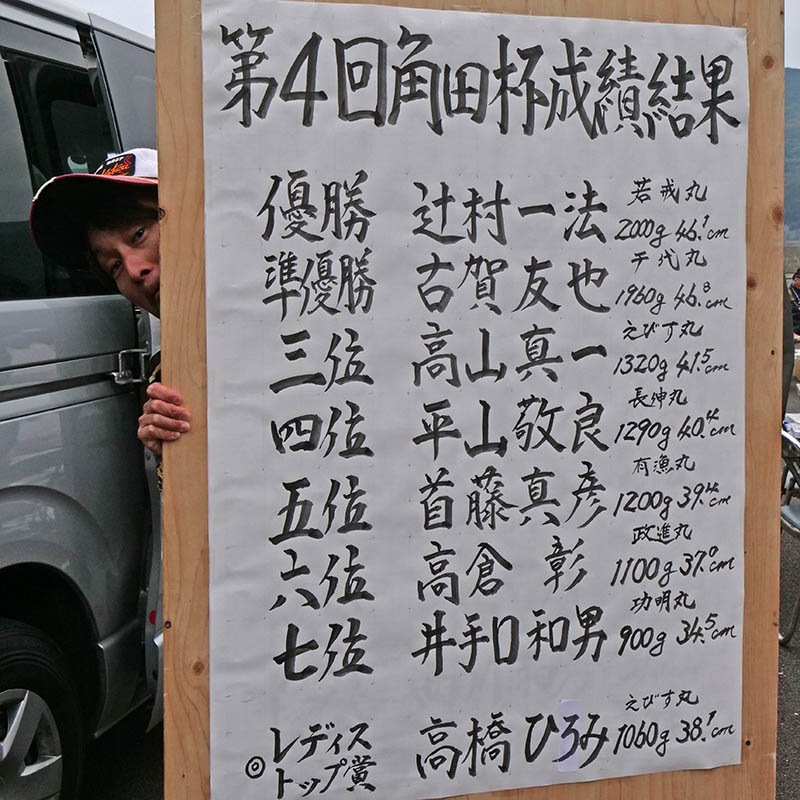 第4回角田杯成績結果
優勝 辻村一法 若戎丸 2000g 46.1cm
準優勝 古賀友也 千代丸 1960g 46.8cm
三位 高山真一 えびす丸 1320g 41.5cm
四位 平山敬良 長伸丸 1290g 40.4cm
五位 首藤真彦 有漁丸 1200g 39.4cm
六位 高倉彰 政進丸 1100g 37.0cm
七位 井手口和男 功明丸 900g 34.5cm
◎レディストップ賞 高橋ひろみ えびす丸 1060g 38.1cm